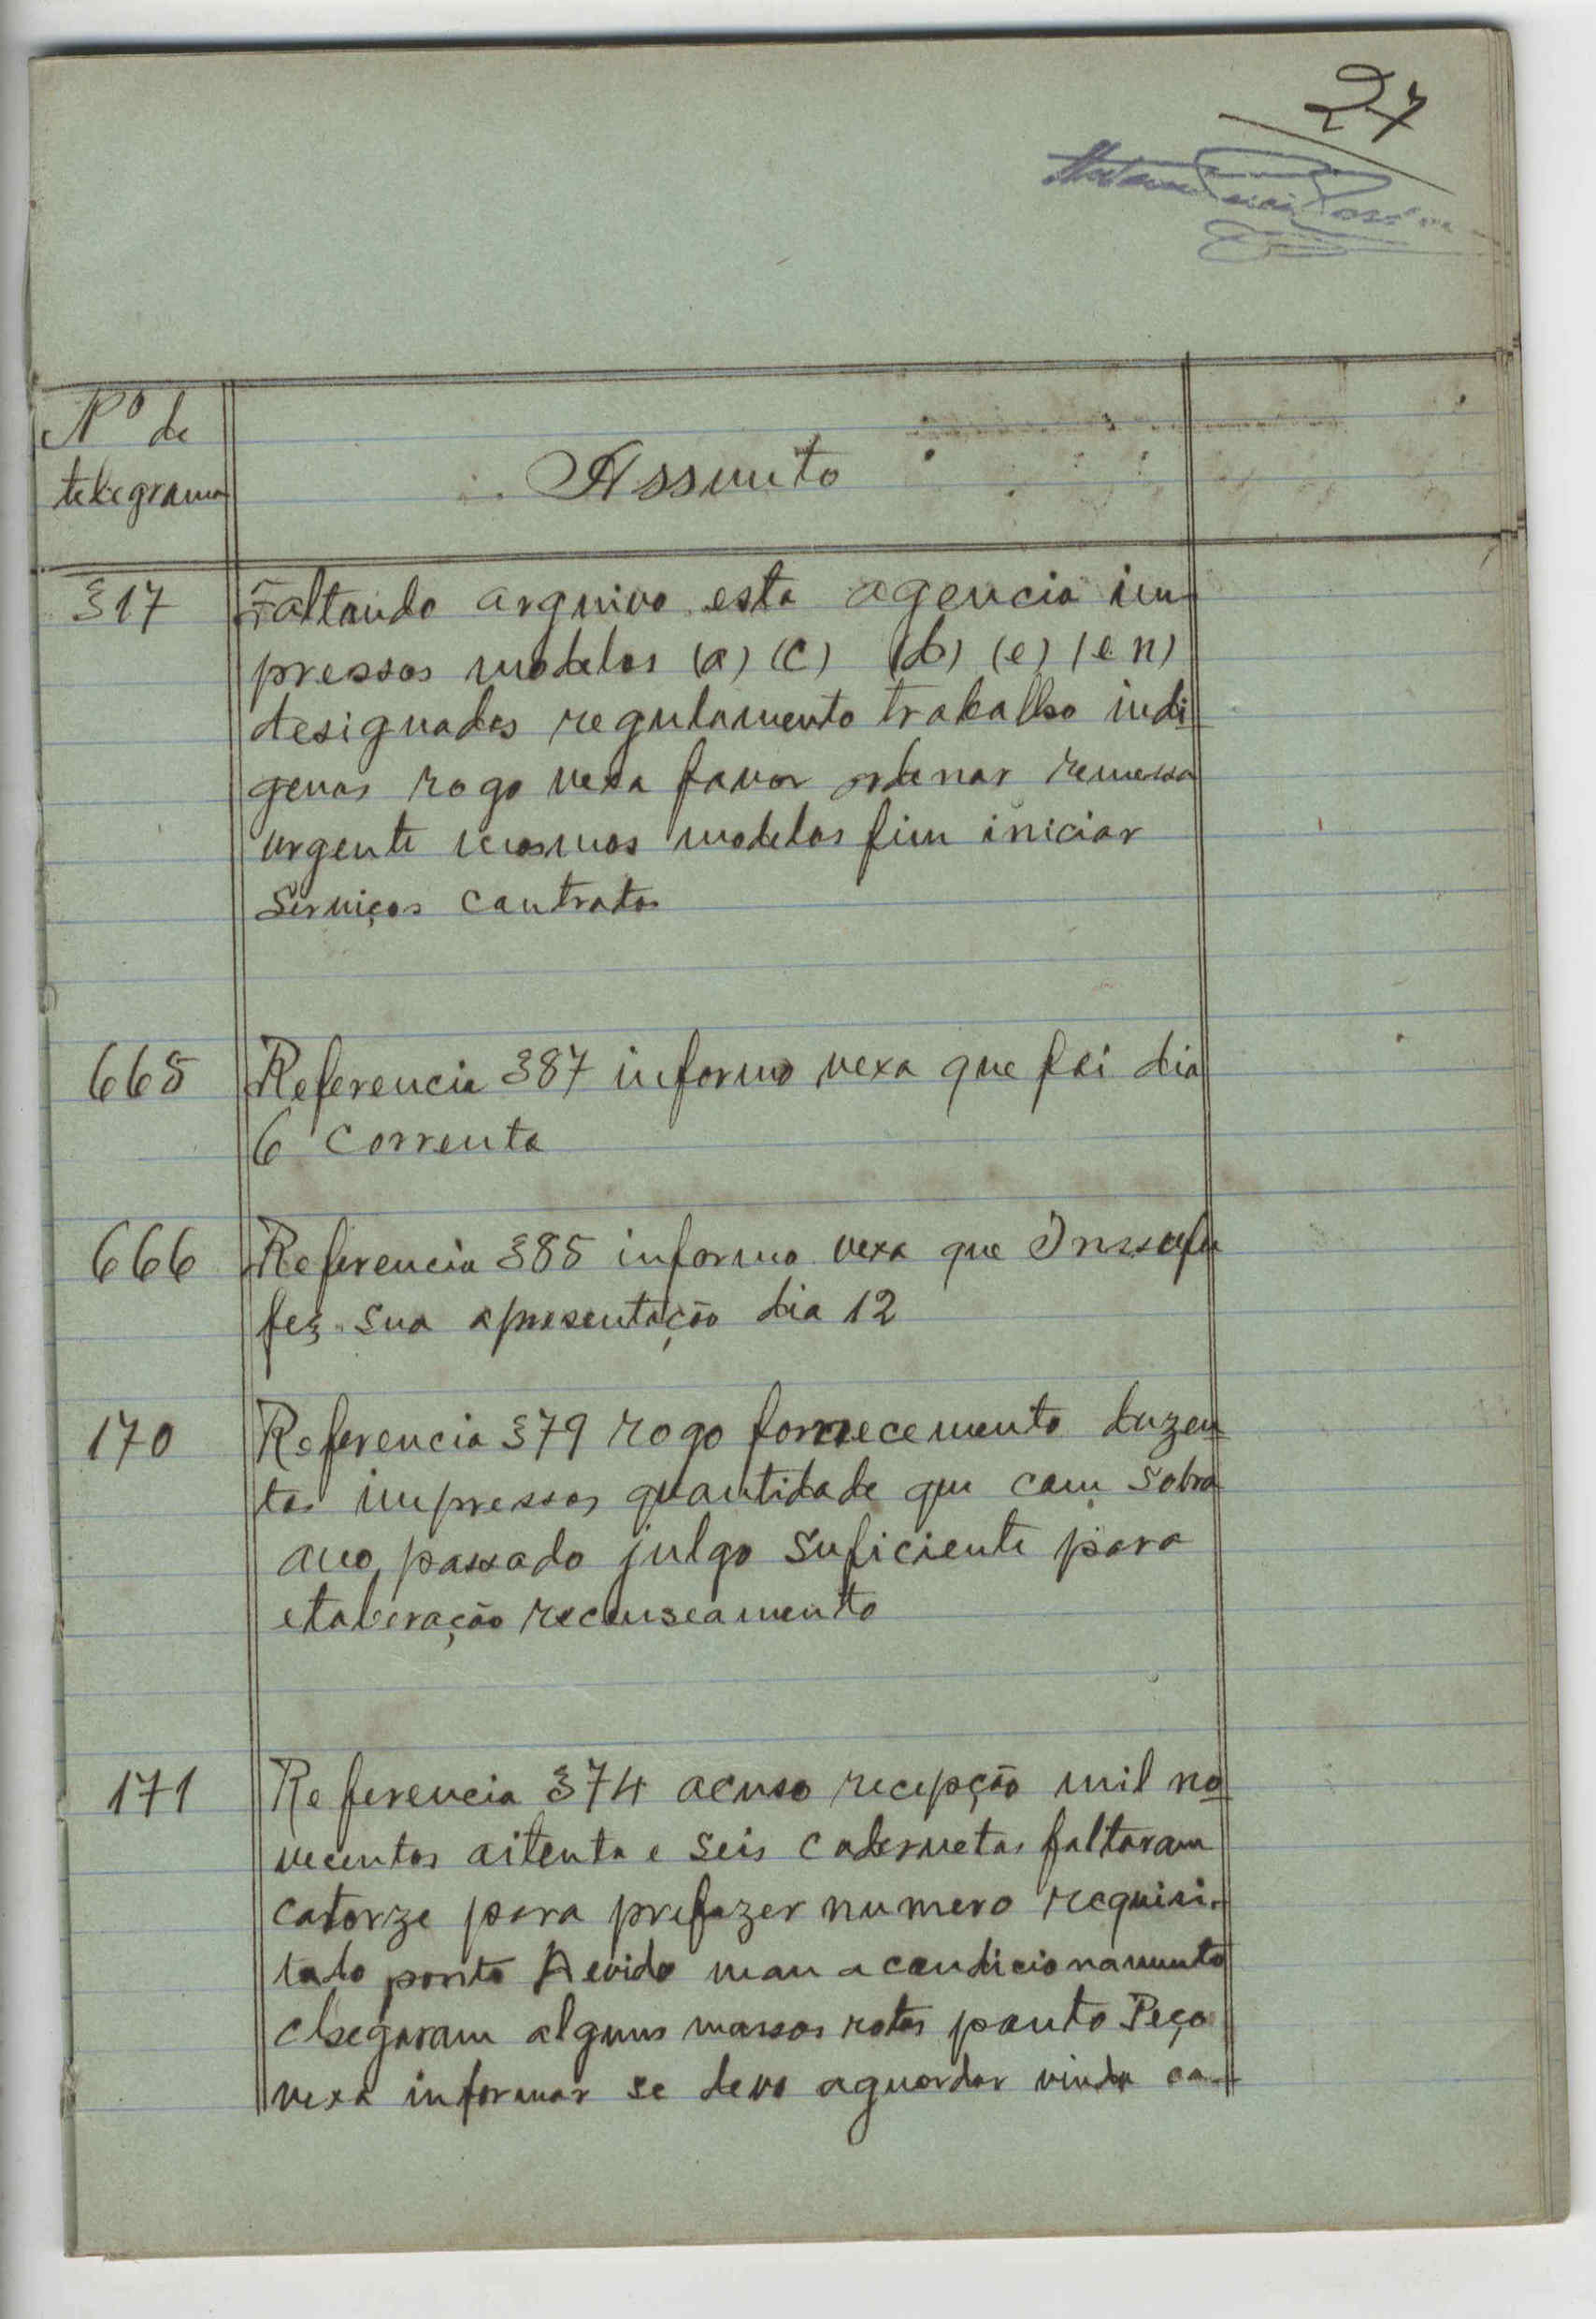 27
Nº de
telegrama
Assunto
317 Faltando arquivo esta agencia im-
pressos modelos (a) (c) (d) (e) (e n)
designados regulamento trabalho indi
genas rogo vexa favor ordenar remessa
urgente mesmos modelos fim iniciar
serviços contratos
665 Referencia 387 informo vexa que foi dia
6 corrente
666 Referencia 385 informo vexa que
fez sua apresentação dia 12
170 Referencia 379 rogo fornecemento duzen
tos impressos quantidade que com sobra
ano passado julgo suficiente para
elaboração recenseamento
171 Referencia 374 acuso recepção mil no
vecentos oitenta e seis cadernetas faltaram
catorze para prefazer numero requisi-
tado ponto Devido mau acondicionamento
chegaram alguns massos rotos ponto Peço
vexa informar se devo aguardar vinda ca-